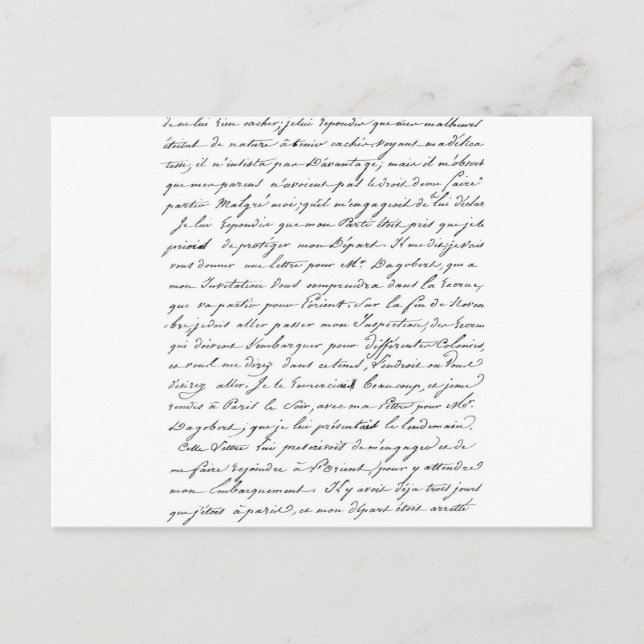 de ne lui rien cacher; je lui repondis que mes malheurs
étoient de nature à tenir cachés voyant ma délica
tesse; il n'insista pas D'avantage; mais il m'observ
que mes parens n'avoient pas le droit de me faire
partir Malgré moi; qu'il m'engageoit de lui déclar
Je lui repondis que mon Parti étoit pris que je le
priois de protéger mon Départ. Il me dit; je vais
vous donner une lettre pour Mr. Dagobert, que a
mon Invitation Vous comprendra dans la Recrue,
que va partir pour l'orient. Sur la fin de Novem
bre, je dois aller passer mon Inspection, des Recrues
qui doivent s'embarquer pour différentes Colonies,
et vous me direz dans ce tems, l'endroit ou Vous
désirez aller. Je le remerciais beaucoup, et je me
rendis à Paris le Soir, avec ma lettre pour Mr.
Dagobert; que je lui présentois le lendemain.
Cette lettre lui prescrivoit de m'engager et de
me faire rejoindre à l'Orient, pour y attendre
mon Embarquement. Il y avoit déja trois jours
que j'étois à paris, et mon départ étoit arretté